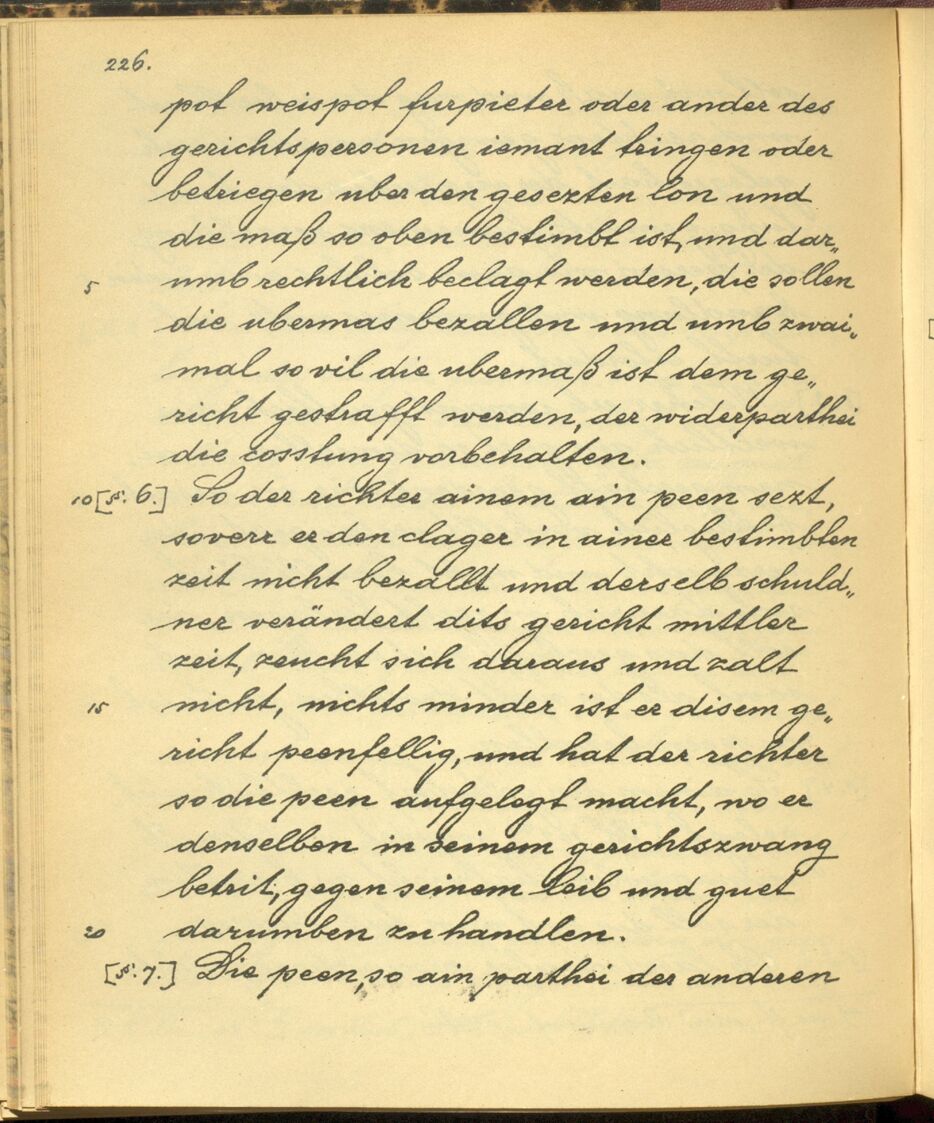 226.
pot weispot furpieter oder ander des
gerichtspersonen iemant tringen oder
betriegen uber den gesezten lon und
die maß so oben bestimbt ist, und dar„
5 umb rechtlich beclagt werden, die sollen
die ubermas bezallen und umb zwai„
mal so vil die ubermaß ist dem ge„
richt gestrafft werden, der widerparthei
die cosstung vorbehalten.
10 [§. 6.] So der richter ainem ain peen sezt,
soverr er den clager in ainer bestimbten
zeit nicht bezallt und derselb schuld„
ner verändert dits gericht mittler
zeit, zeucht sich daraus und zalt
15 nicht, nichts minder ist er disem ge„
richt peenfellig, und hat der richter
so die peen aufgelegt macht, wo er
denselben in seinem gerichtszwang
betrit, gegen seinem leib und guet
20 darumben zu handlen.
[§. 7.] Die peen, so ain parthei der anderen